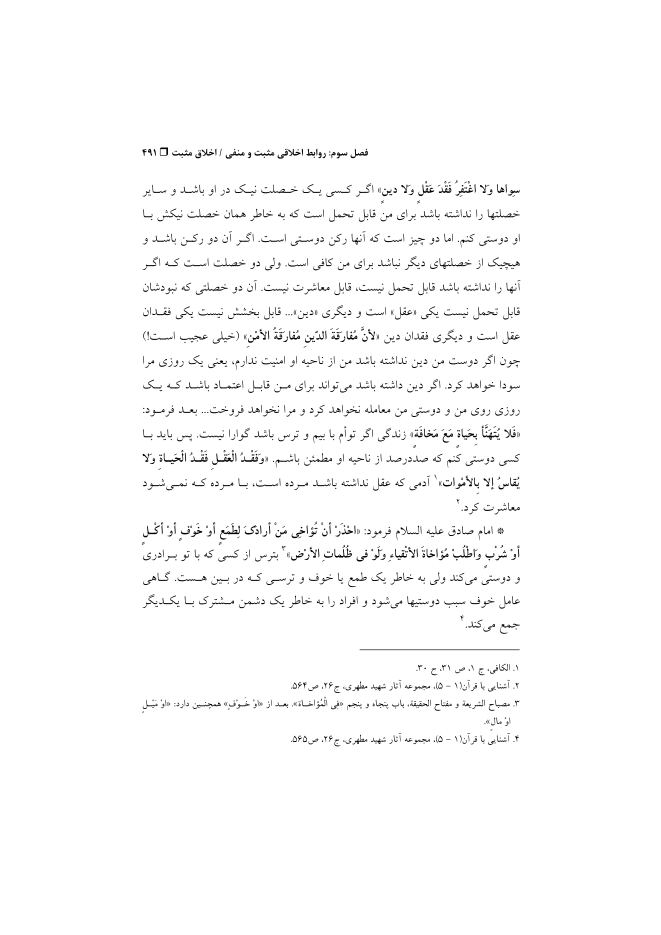 فصل سوم: روابط اخلاقی مثبت و منفی / اخلاق مثبت ❒ ۴۹۱
سِواها وَلا اغْتَفِرُ فَقْدَ عَقْلٍ وَلا دینٍ» اگر کسی یک خصلت نیک در او باشد و سایر
خصلتها را نداشته باشد برای من قابل تحمل است که به خاطر همان خصلت نیکش با
او دوستی کنم. اما دو چیز است که آنها رکن دوستی است. اگر آن دو رکن باشد و
هیچیک از خصلتهای دیگر نباشد برای من کافی است. ولی دو خصلت است که اگر
آنها را نداشته باشد قابل تحمل نیست، قابل معاشرت نیست. آن دو خصلتی که نبودشان
قابل تحمل نیست یکی «عقل» است و دیگری «دین»... قابل بخشش نیست یکی فقدان
عقل است و دیگری فقدان دین «لأنَّ مُفارَقَةَ الدّینِ مُفارَقَةُ الأمْنِ» (خیلی عجیب است!)
چون اگر دوست من دین نداشته باشد من از ناحیه او امنیت ندارم، یعنی یک روزی مرا
سودا خواهد کرد. اگر دین داشته باشد می‌تواند برای من قابل اعتماد باشد که یک
روزی روی من و دوستی من معامله نخواهد کرد و مرا نخواهد فروخت... بعد فرمود:
«فَلا یُتَهَنَّأُ بِحَیاةٍ مَعَ مَخافَةٍ» زندگی اگر توأم با بیم و ترس باشد گوارا نیست. پس باید با
کسی دوستی کنم که صددرصد از ناحیه او مطمئن باشم. «وَفَقْدُ الْعَقْلِ فَقْدُ الْحَیاةِ وَلا
یُقاسُ إلا بِالأمْواتِ»۱ آدمی که عقل نداشته باشد مرده است، با مرده که نمی‌شود
معاشرت کرد.۲
* امام صادق علیه السلام فرمود: «احْذَرْ أنْ تُؤاخِیَ مَنْ أرادَکَ لِطَمَعٍ أوْ خَوْفٍ أوْ أکْلٍ
أوْ شُرْبٍ وَاطْلُبْ مُؤاخاةَ الأتْقیاءِ وَلَوْ فی ظُلُماتِ الأرْضِ»۳ بترس از کسی که با تو برادری
و دوستی می‌کند ولی به خاطر یک طمع یا خوف و ترسی که در بین هست. گاهی
عامل خوف سبب دوستیها می‌شود و افراد را به خاطر یک دشمن مشترک با یکدیگر
جمع می‌کند.۴
۱. الکافی، ج ۱، ص ۳۱، ح ۳۰.
۲. آشنایی با قرآن(۱ – ۵)، مجموعه آثار شهید مطهری، ج۲۶، ص۵۶۴.
۳. مصباح الشریعة و مفتاح الحقیقة، باب پنجاه و پنجم «فِی الْمُؤاخاةِ». بعد از «اوْ خَوْفٍ» همچنین دارد: «اوْ مَیْلٍ
اوْ مالٍ».
۴. آشنایی با قرآن(۱ – ۵)، مجموعه آثار شهید مطهری، ج۲۶، ص۵۶۵.